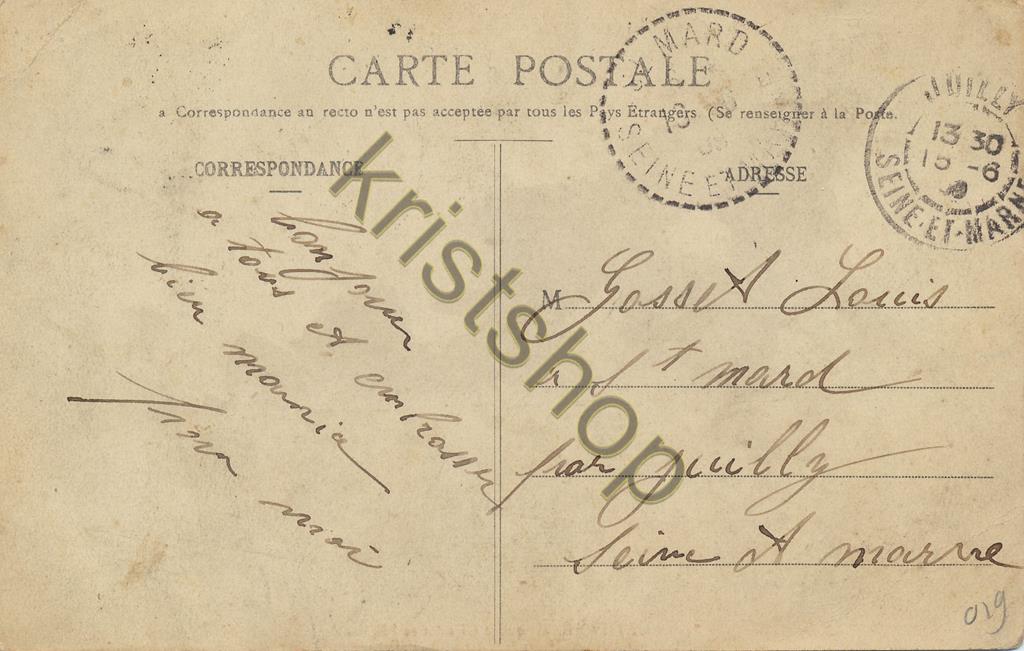 CARTE POSTALE
a Correspondance au recto n'est pas acceptée par tous les Pays Etrangers (Se renseigner à la Poste.
MARD
SEINE ET MARNE
JUILLY
13 30
15 -6
SEINE-ET-MARNE
CORRESPONDANCE
ADRESSE
bonjour
a tous et embrasser
bien maurice
pour moi
M Gosset Louis
a St mard
par juilly
Seine et marne
kristshop
029